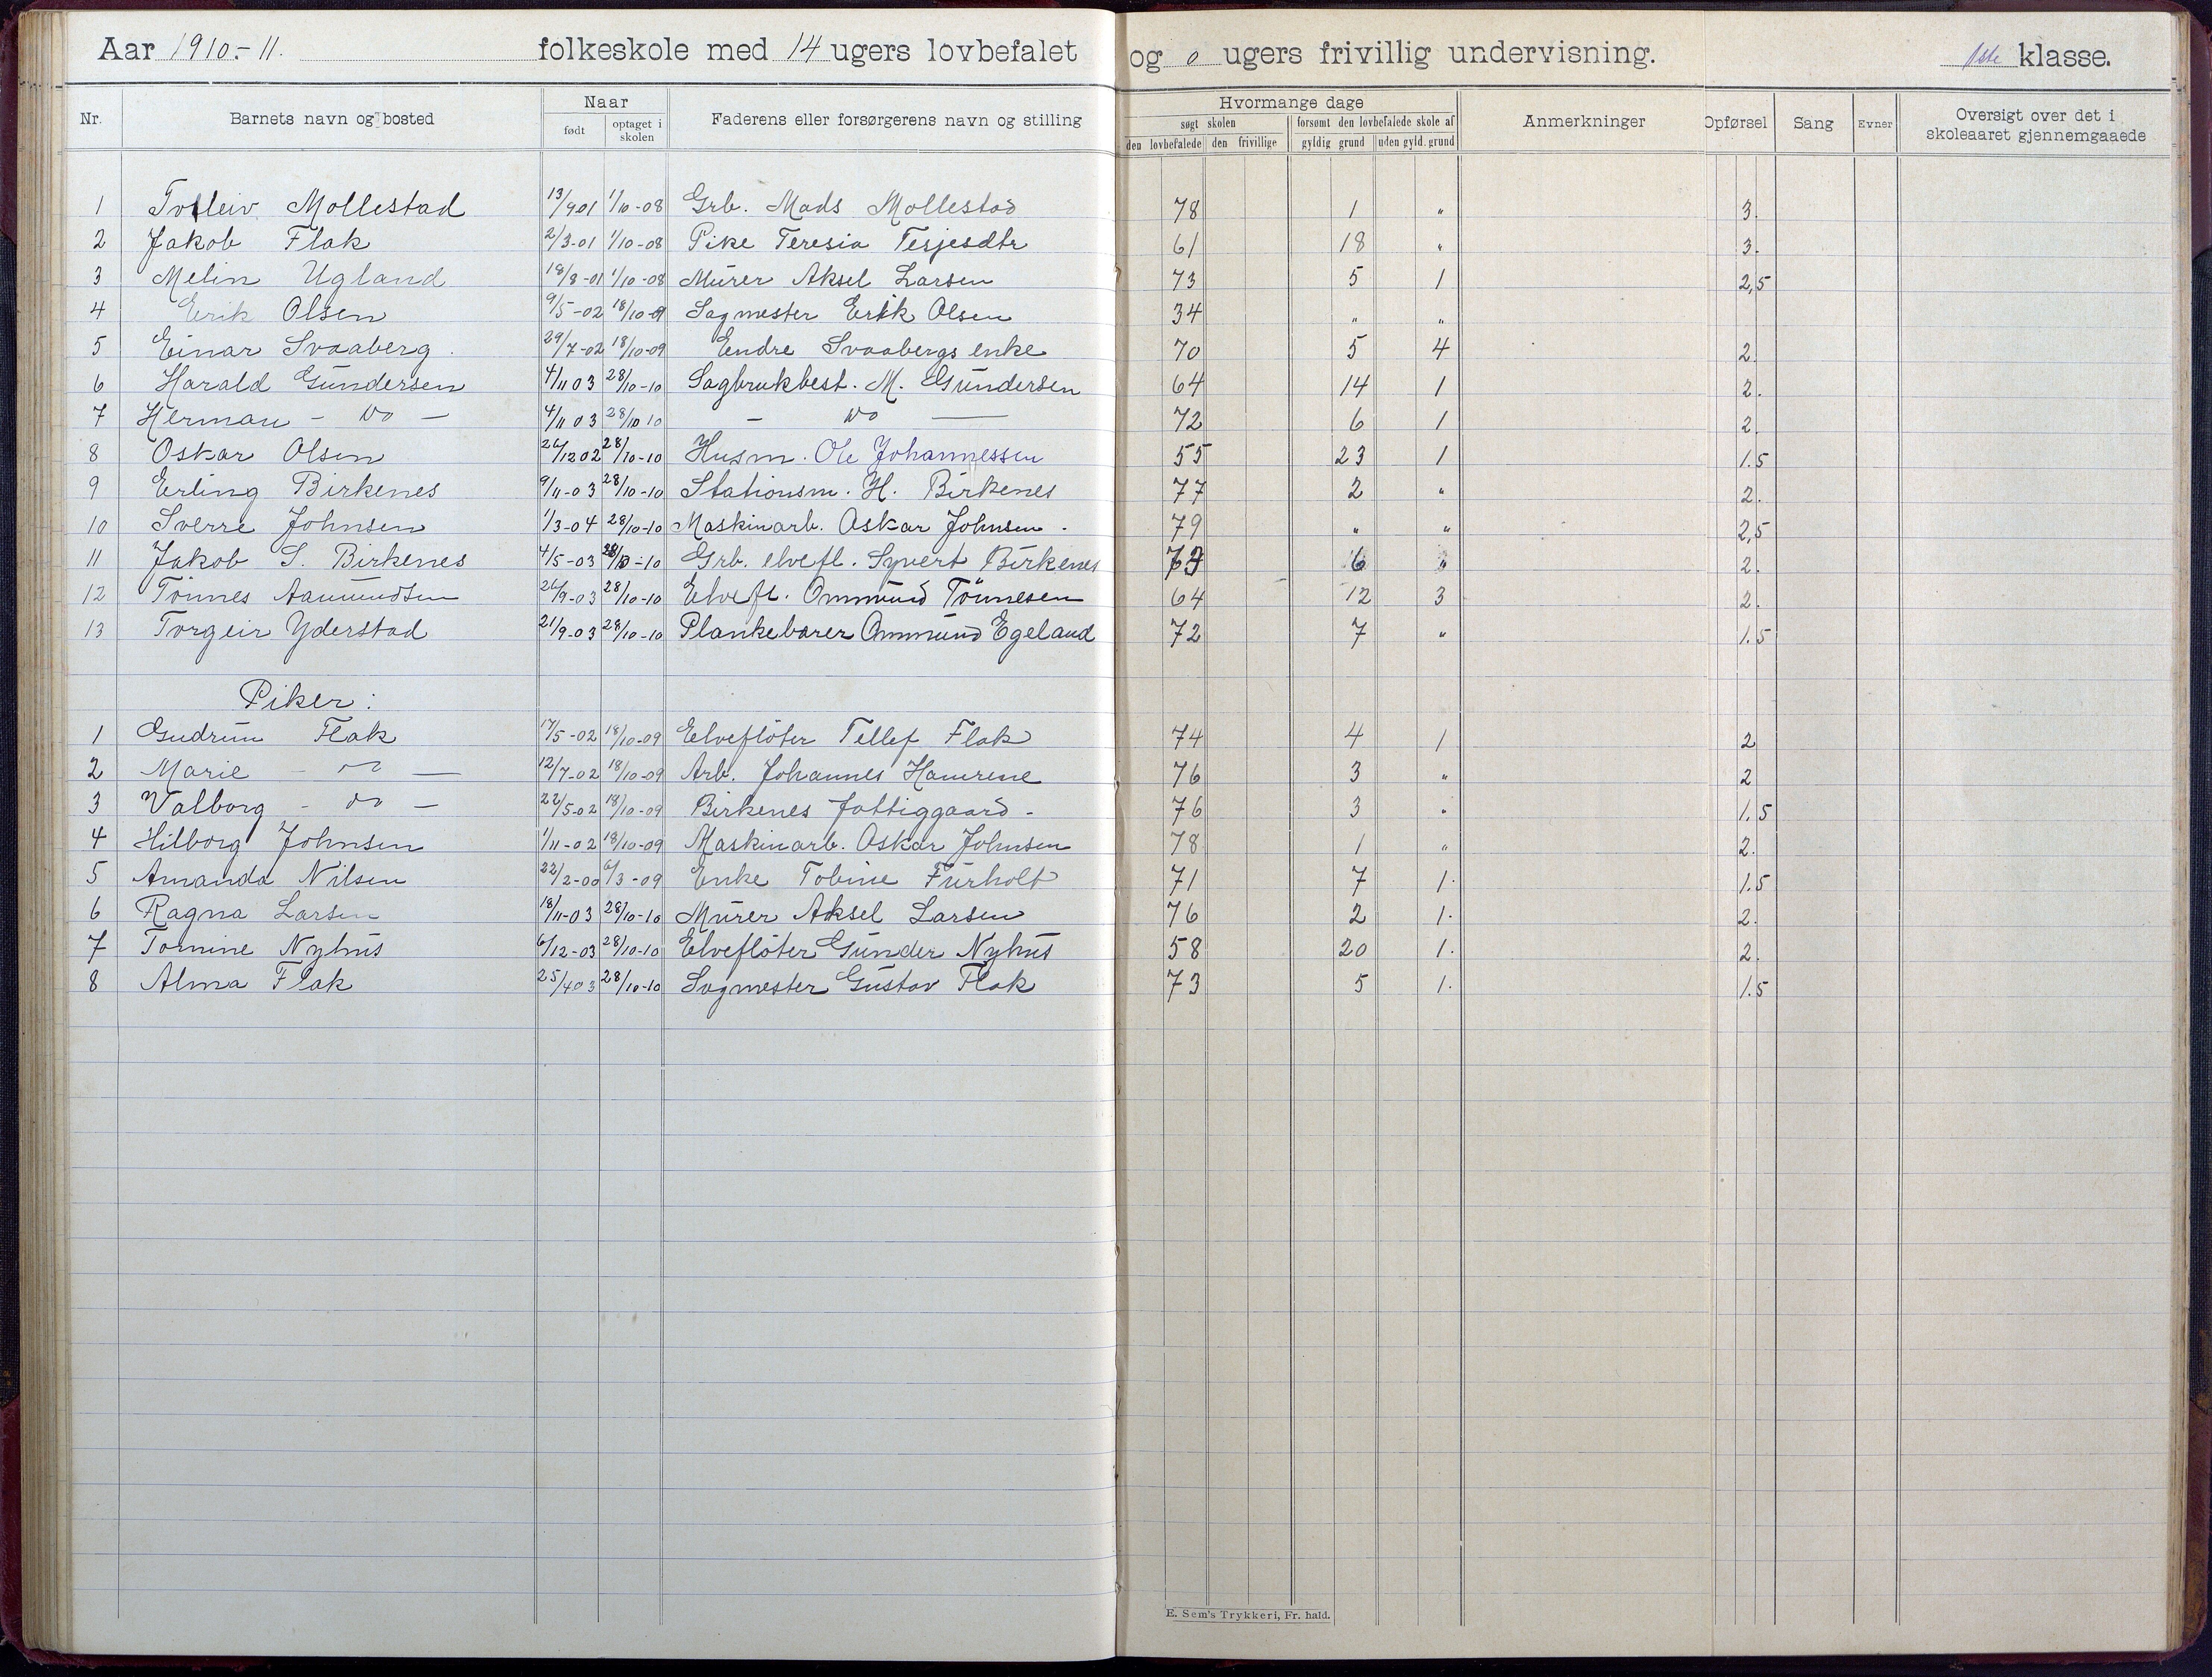 Aar 1910.-11. folkeskole med 14 ugers lovbefalet og 0 ugers frivillig undervisning. 1ste klasse.
Nr. Barnets navn og bosted Naar født optaget i skolen Faderens eller forsørgerens navn og stilling Hvormange dage søgt skolen den lovbefalede den frivillige forsømt den lovbefalede skole af gyldig grund uden gyld. grund Anmerkninger Opførsel Sang Evner Oversigt over det i skoleaaret gjennemgaaede
1 Torleiv Mollestad 13/9 01 1/10-08 Grb. Mads Mollestad 78 1 " 3.
2 Jakob Flak 2/3-01 1/10-08 Pike Teresia Terjesdtr 61 18 " 3.
3 Melin Ugland 18/8-01 1/10-08 Murer Aksel Larsen 73 5 1 2,5
4 Erik Olsen 9/5-02 18/10-09 Sagmester Erik Olsen 34 " "
5 Einar Svaaberg. 29/7-02 18/10-09 Endre Svaabergs enke 70 5 4 2.
6 Harald Gundersen 4/11 03 28/10-10 Sagbrukbest. M. Gundersen 64 14 1 2.
7 Herman - do - 4/11 03 28/10 10 - do - 72 6 1 2.
8 Oskar Olsen 26/12 02 28/10-10 Husm. Ole Johannessen 55 23 1 1.5
9 Erling Birkenes 9/11-03 28/10-10 Stationsm. H. Birkenes 77 2 " 2.
10 Sverre Johnsen 1/3-04 28/10-10 Maskinarb. Oskar Johnsen. 79 " " 2,5
11 Jakob S. Birkenes 4/5-03 28/10-10 Grb. elvefl. Syvert Birkenes 73 6 " 2.
12 Tönnes Aamundsen 26/9-03 28/10-10 Elvefl. Ommund Tönnesen 64 12 3 2.
13 Torgeir Yderstad 21/9-03 28/10-10 Plankebærer Ommund Egeland 72 7 " 1.5
Piker:
1 Gudrun Flak 17/5-02 18/10-09 Elveflöter Tellef Flak 74 4 1 2
2 Marie - do - 12/7-02 18/10-09 Arb. Johannes Hamrene 76 3 " 2
3 Valborg - do - 22/5-02 18/10-09 Birkenes fattiggaard - 76 3 " 1.5
4 Hilborg Johnsen 1/11-02 18/10-09 Maskinarb. Oskar Johnsen 78 1 " 2.
5 Amanda Nilsen 22/2-00 6/3-09 Enke Tobine Furholt 71 7 1. 1.5
6 Ragna Larsen 18/11-03 28/10-10 Murer Aksel Larsen 76 2 1. 2.
7 Tomine Nyhus 6/12-03 28/10-10 Elveflöter Gunder Nyhus 58 20 1. 2.
8 Alma Flak 25/4 03 28/10-10 Sagmester Gustav Flak 73 5 1. 1.5
E. Sem's Trykkeri, Fr. hald.